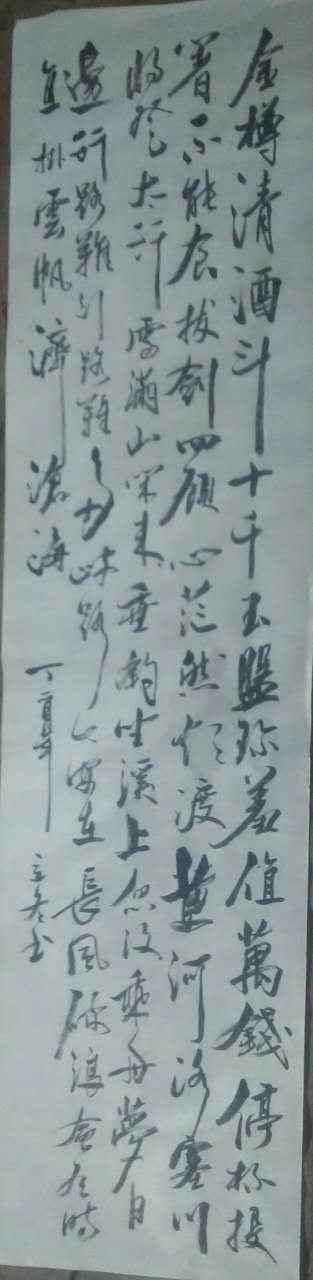 金樽清酒斗十千玉盤珍羞值萬錢停杯投
箸不能食拔劍四顧心茫然欲渡黄河冰塞川
將登太行雪滿山閑來垂釣坐溪上忽復乘舟夢日
邊行路難行路難多歧路今安在長風破浪會有時
直掛雲帆濟滄海 丁酉年